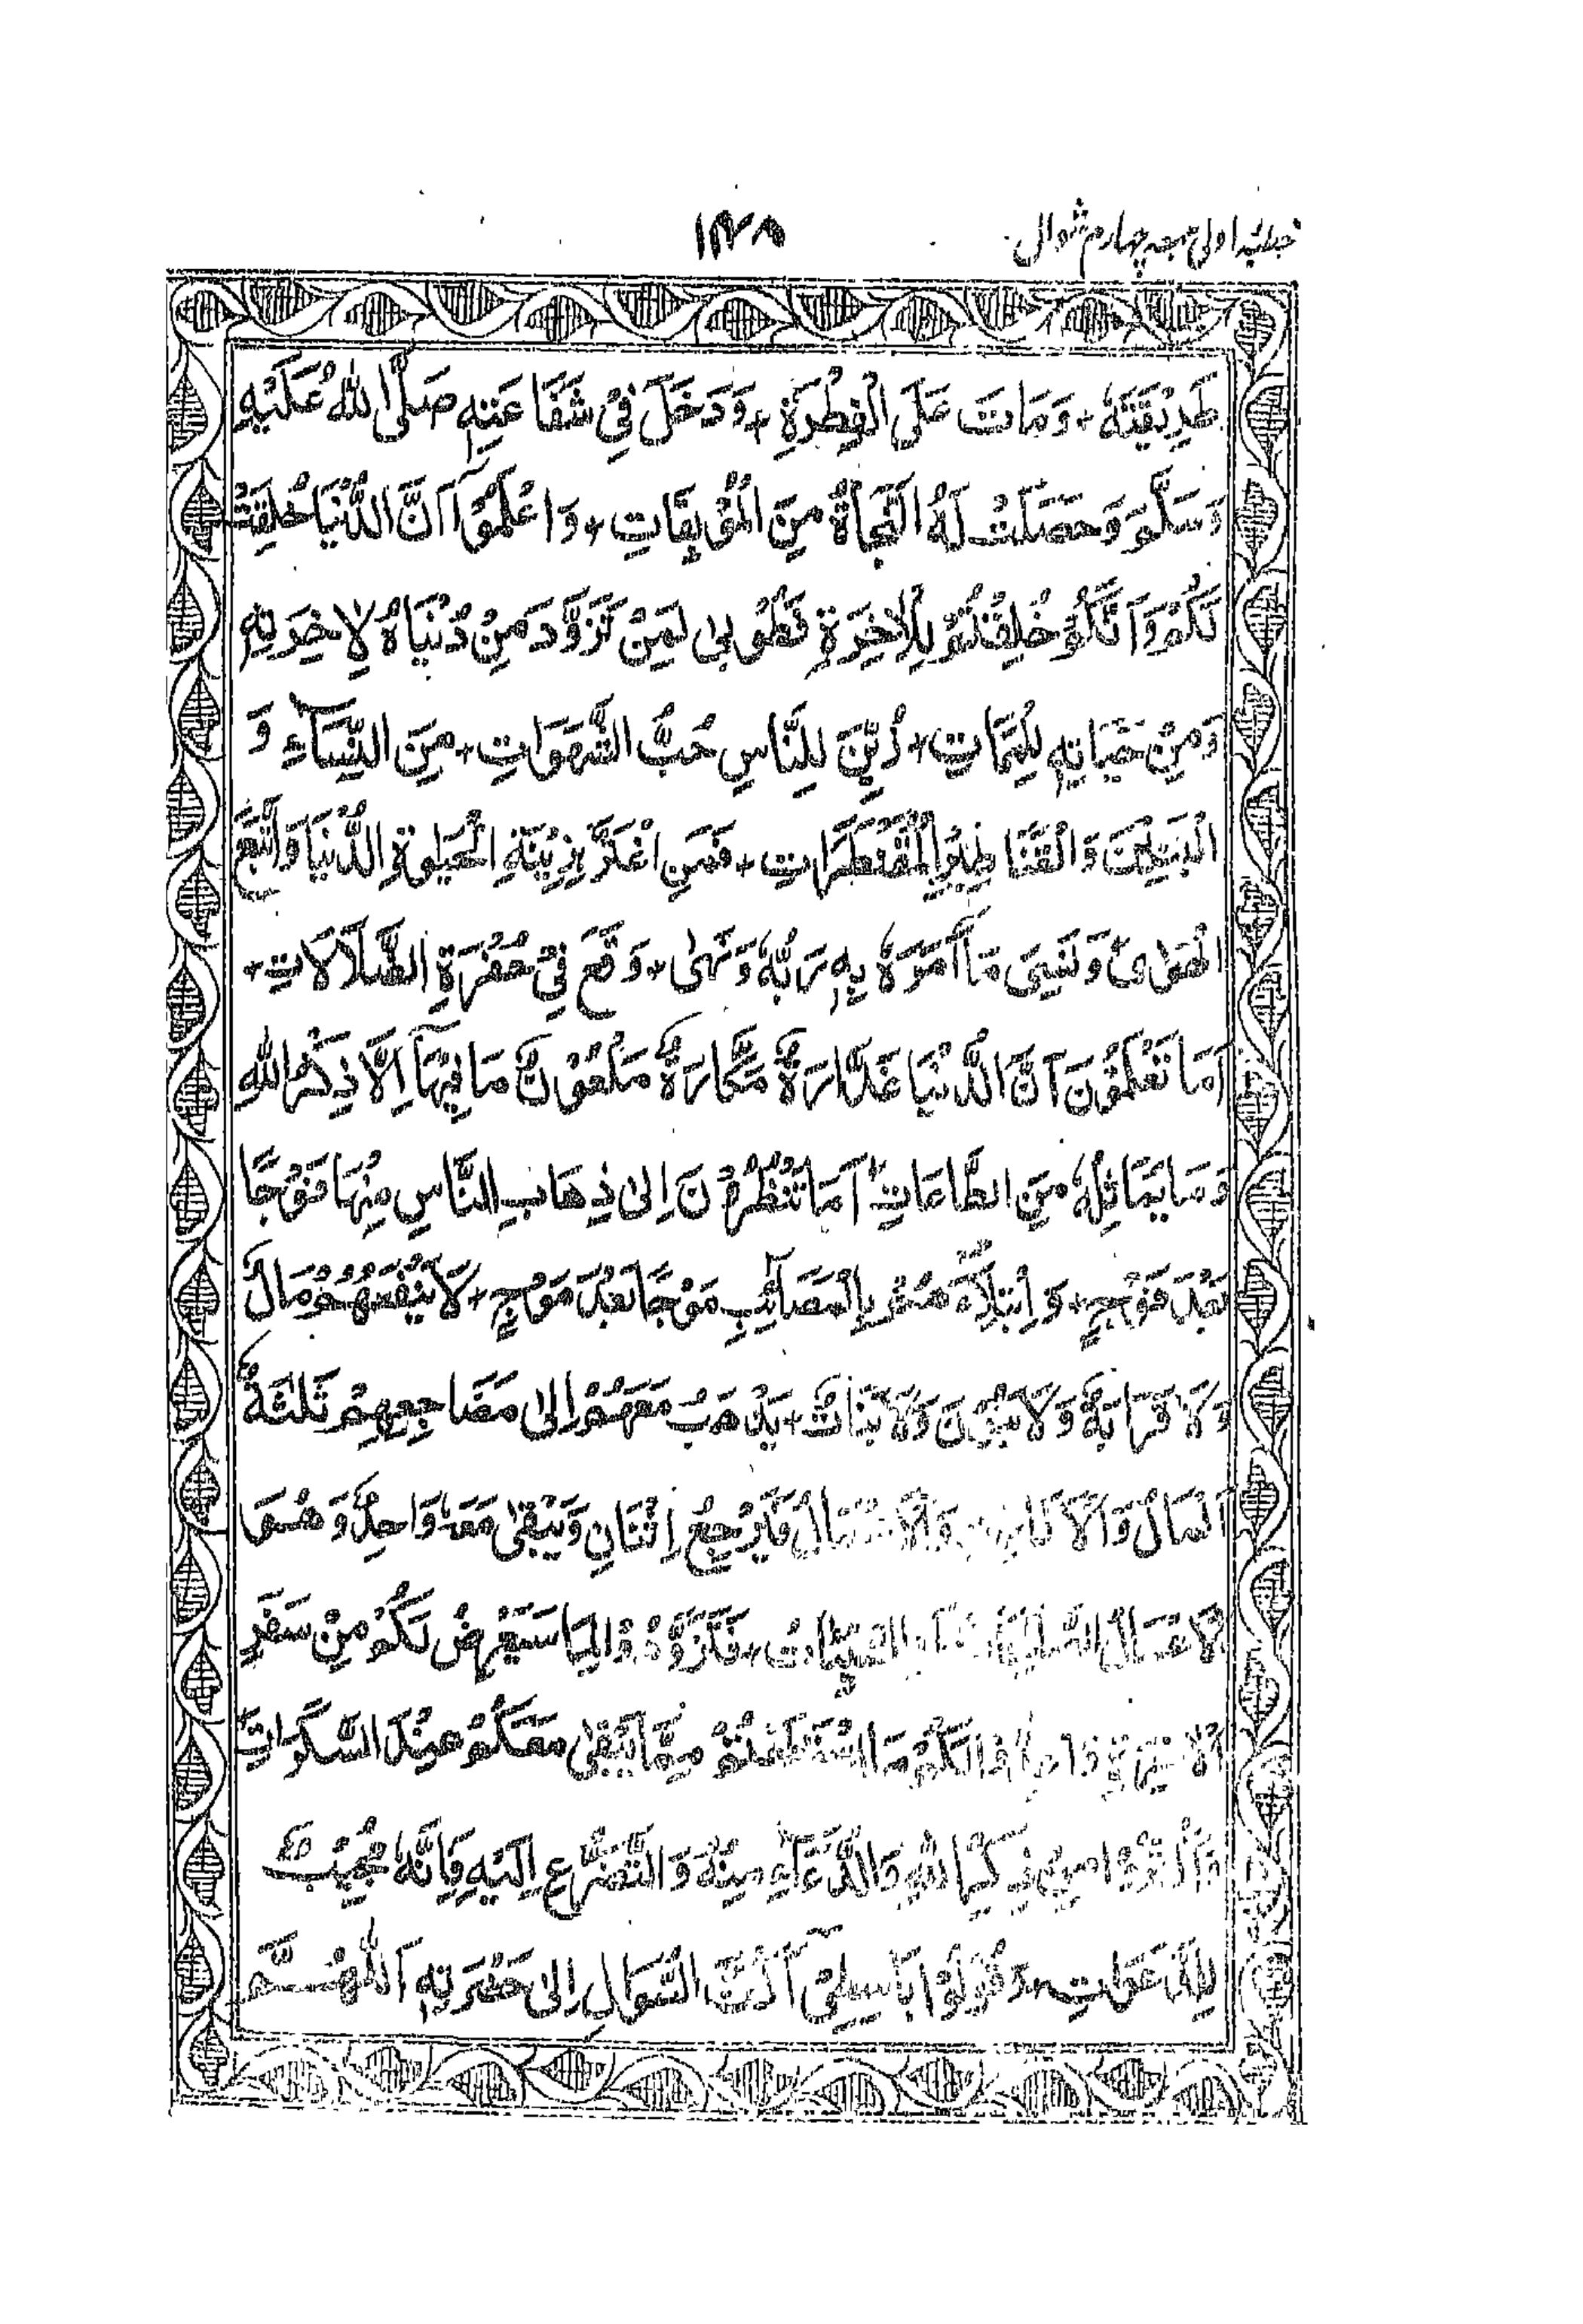 خطبہ اولی جمعہ چہارم شوال
طَرِيْقَتِهٗ + وَمَاتَ عَلَى الْفِطْرَةِ + وَدَخَلَ فِيْ شَفَاعَتِهٖ صَلَّى اللهُ عَلَيْهِ
وَسَلَّمَ وَحَصَلَتْ لَهُ النَّجَاةُ مِنَ الْمُوْبِقَاتِ + وَاعْلَمُوْا اَنَّ الدُّنْيَا خُلِقَتْ
لَكُمْ وَاَنَّكُمْ خُلِقْتُمْ لِلْاٰخِرَةِ فَطُوْبٰى لِمَنْ تَزَوَّدَ مِنْ دُنْيَاهُ لِاٰخِرَتِهٖ
وَمِنْ حَيَاتِهٖ لِلْمَمَاتِ + زُيِّنَ لِلنَّاسِ حُبُّ الشَّهَوَاتِ + مِنَ النِّسَآءِ وَ
الْبَنِيْنَ وَالْقَنَاطِيْرِ الْمُقَنْطَرَاتِ + فَمَنِ اغْتَرَّ بِزِيْنَةِ الْحَيٰوةِ الدُّنْيَا وَاتَّبَعَ
الْهَوٰى وَنَسِيَ مَا اَمَرَهٗ بِهٖ رَبُّهٗ وَنَهٰى + وَقَعَ فِيْ حُفْرَةِ الضَّلَالَاتِ +
اَمَا تَعْلَمُوْنَ اَنَّ الدُّنْيَا غَدَّارَةٌ مَكَّارَةٌ مَلْعُوْنٌ مَا فِيْهَا اِلَّا ذِكْرُ اللهِ
وَمَا يُمَاثِلُهٗ مِنَ الطَّاعَاتِ اَمَا تَنْظُرُوْنَ اِلٰى ذِهَابِ النَّاسِ مِنْهَا فَوْجًا
بَعْدَ فَوْجٍ + وَابْتِلَآءِ هِمْ بِالْمَصَآئِبِ مَوْجًا بَعْدَ مَوْجٍ + لَا يَنْفَعُهُمْ مَالٌ
وَلَا قَرَابَةٌ وَلَا بَنُوْنَ وَلَا بَنَاتٌ + يَذْهَبُ مَعَهُمْ اِلٰى مَضَاجِعِهِمْ ثَلٰثَةٌ
اَلْمَالُ وَالْاَقَارِبُ وَالْاَعْمَالُ فَيَرْجِعُ اِثْنَانِ وَيَبْقٰى مَعَهٗ وَاحِدٌ وَهُوَ
الْاَعْمَالُ فَتَزَوَّدُوْا لِمَا سَيَعْرِضُ لَكُمْ مِنْ سَفَرِ
الْاٰخِرَةِ مَا اسْتَطَعْتُمْ مِمَّا يَبْقٰى مَعَكُمْ عِنْدَ السَّكَرَاتِ
وَاَكْثِرُوْا مِنْ ذِكْرِ اللهِ وَالدُّعَآءِ مِنْهُ وَالتَّضَرُّعِ اِلَيْهِ فَاِنَّهٗ مُجِيْبٌ
لِلدَّعَوَاتِ + وَقُوْلُوْا بَاسِطِيْ اَكُفِّ السُّوَالِ اِلٰى حَضْرَتِهٖ اَللّٰهُمَّ